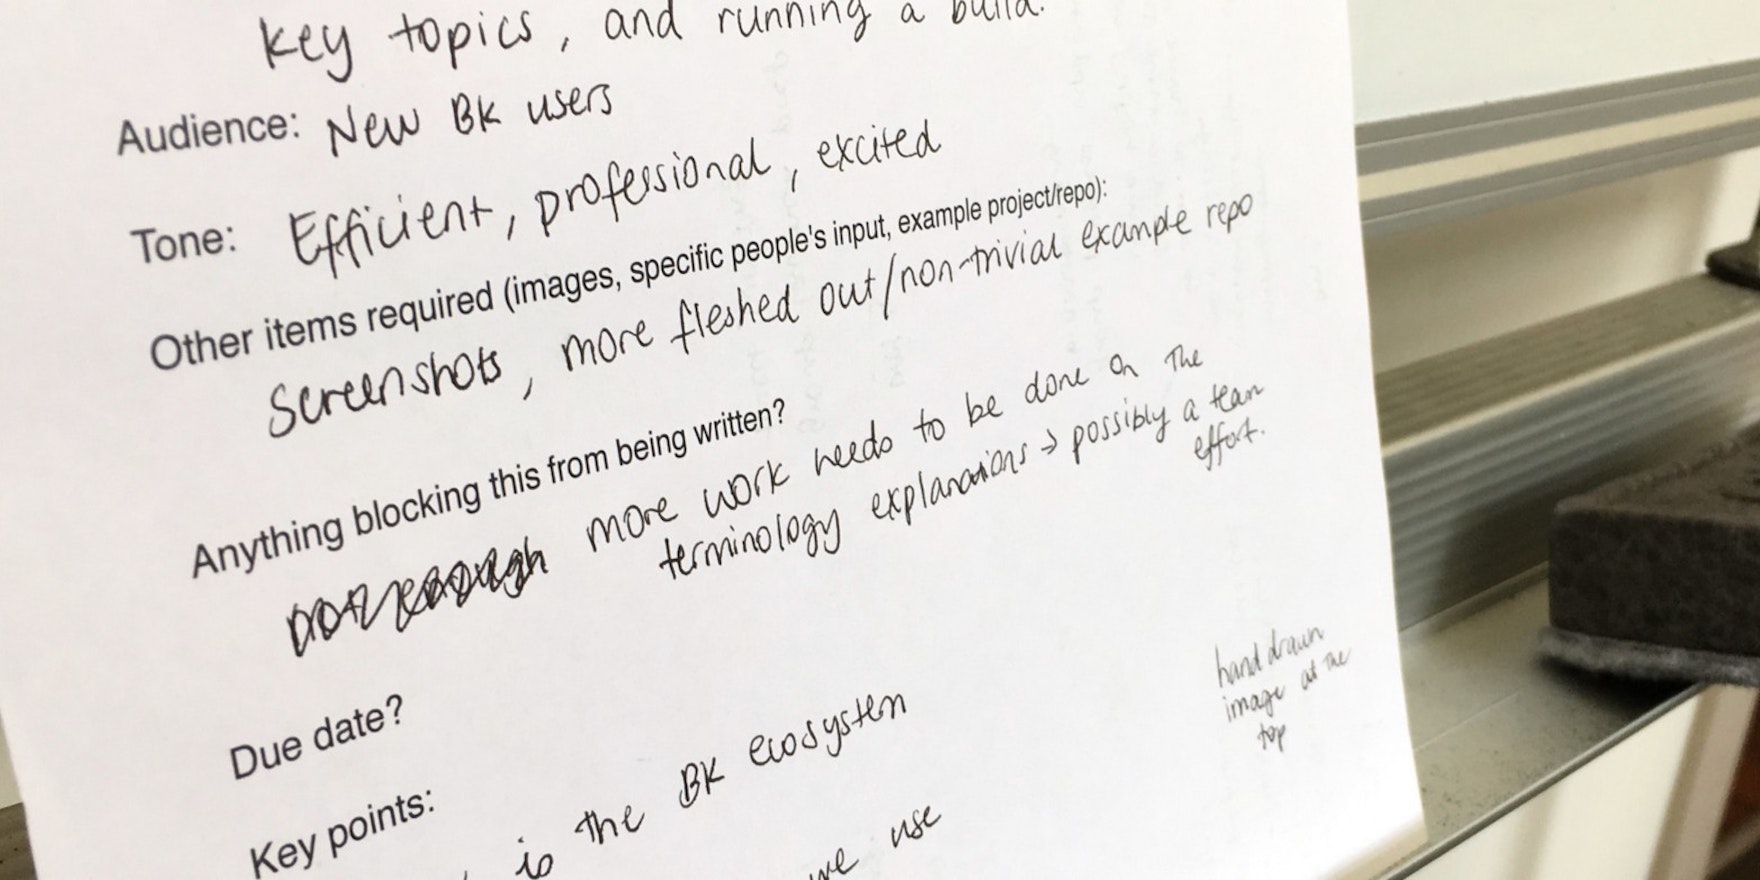 key topics, and running a build.
Audience: New BK users
Tone: Efficient, professional, excited
Other items required (images, specific people's input, example project/repo):
Screenshots, more fleshed out/non-trivial example repo
Anything blocking this from being written?
more work needs to be done on the
terminology explanations → possibly a team
effort.
hand drawn
image at the
top
Due date?
Key points:
is the BK ecosystem
we use